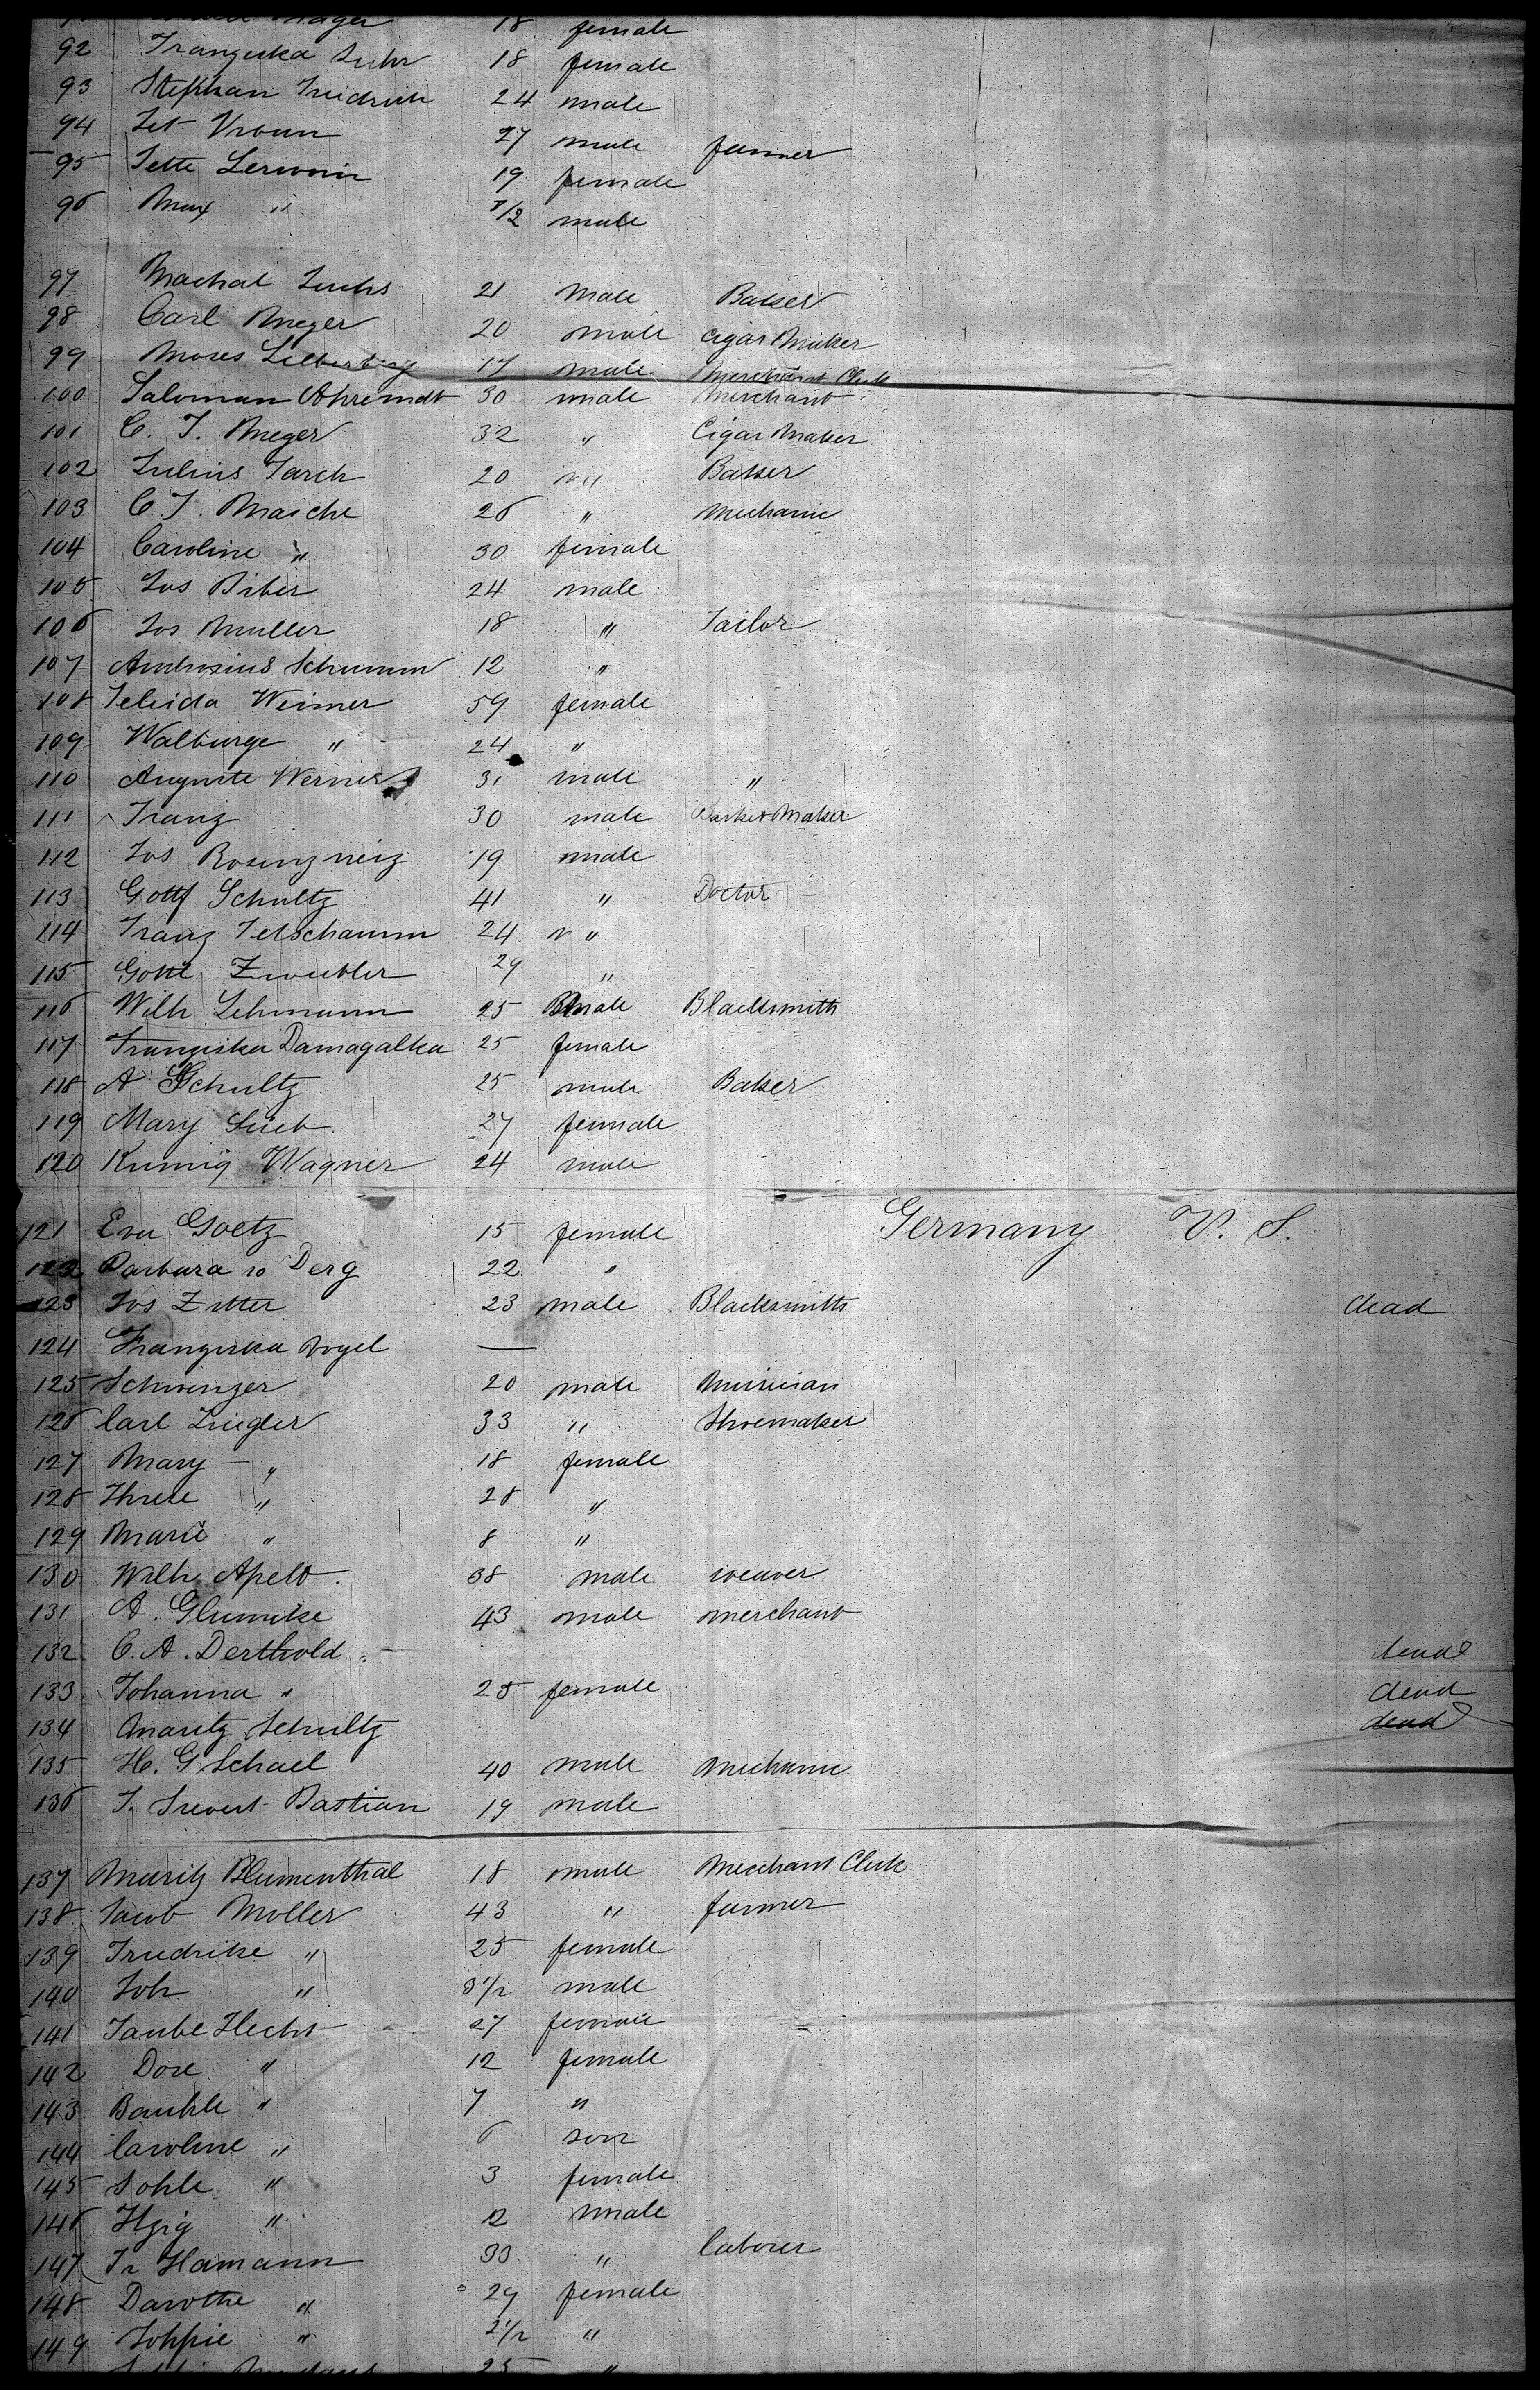 18 female
92 Franziska Fuhr 18 female
93 Stephan Freidrich 24 male
94 Vrbun 27 male farmer
95 Jette Lerwin 19 female
96 Max " 1/2 male
97 Machal Fuchs 21 male Baker
98 Carl Meyer 20 male Cigar Maker
99 Moses Silberberg 17 male Merchant Clerk
100 Saloman Ahremdt 30 male Merchant
101 C. F. Meyer 32 " Cigar Maker
102 Julius Jarch 20 " Baker
103 C F. Masche 26 " Mechanic
104 Caroline " 30 female
105 Jos Biber 24 male
106 Jos Muller 18 " Tailor
107 Ambrosius Schumm 12 "
108 Weimer 59 female
109 Walburge " 24 "
110 Auguste Werner 31 male "
111 Franz 30 male Basket Maker
112 Jos Rosenzweig 19 male
113 Gottf Schultz 41 " Doctor
114 Franz Tetschamm 24 "
115 Gottl Zweibler 29 "
116 Wilh Lehmann 25 male Blacksmith
117 Franziska Damagalka 25 female
118 A Schultz 25 male Baker
119 Mary Lieb 27 female
120 Wagner 24 male
121 Eva Goetz 15 female Germany U. S.
122 Barbara Berg 22 "
123 Jos Zitter 23 male Blacksmith dead
124 Franziska Vogel —
125 Schwenzer 20 male Musician
126 Carl Ziegler 33 " Shoemaker
127 Mary " 18 female
128 Threse " 28 "
129 Marie " 8 "
130 Wilh. Apelt 38 male weaver
131 A. Glumcke 43 male merchant
132 C. A. Berthold dead
133 Johanna " 25 female dead
134 Moritz Schultz dead
135 H. G Schael 40 male mechanic
136 J. Sievert Bastian 19 male
137 Muritz Blumenthal 18 male Merchant Clerk
138 Jacob Moller 43 " farmer
139 Friedrike " 25 female
140 Joh " 3 1/2 male
141 Taube Hecht 27 female
142 Dore " 12 female
143 " 7 "
144 Caroline " 6 son
145 Sohle " 3 female
146 Itzig " male
147 Fr Hamann 33 " laborer
148 Darothe " 29 female
149 Sophie " 2 1/2 "
25 "